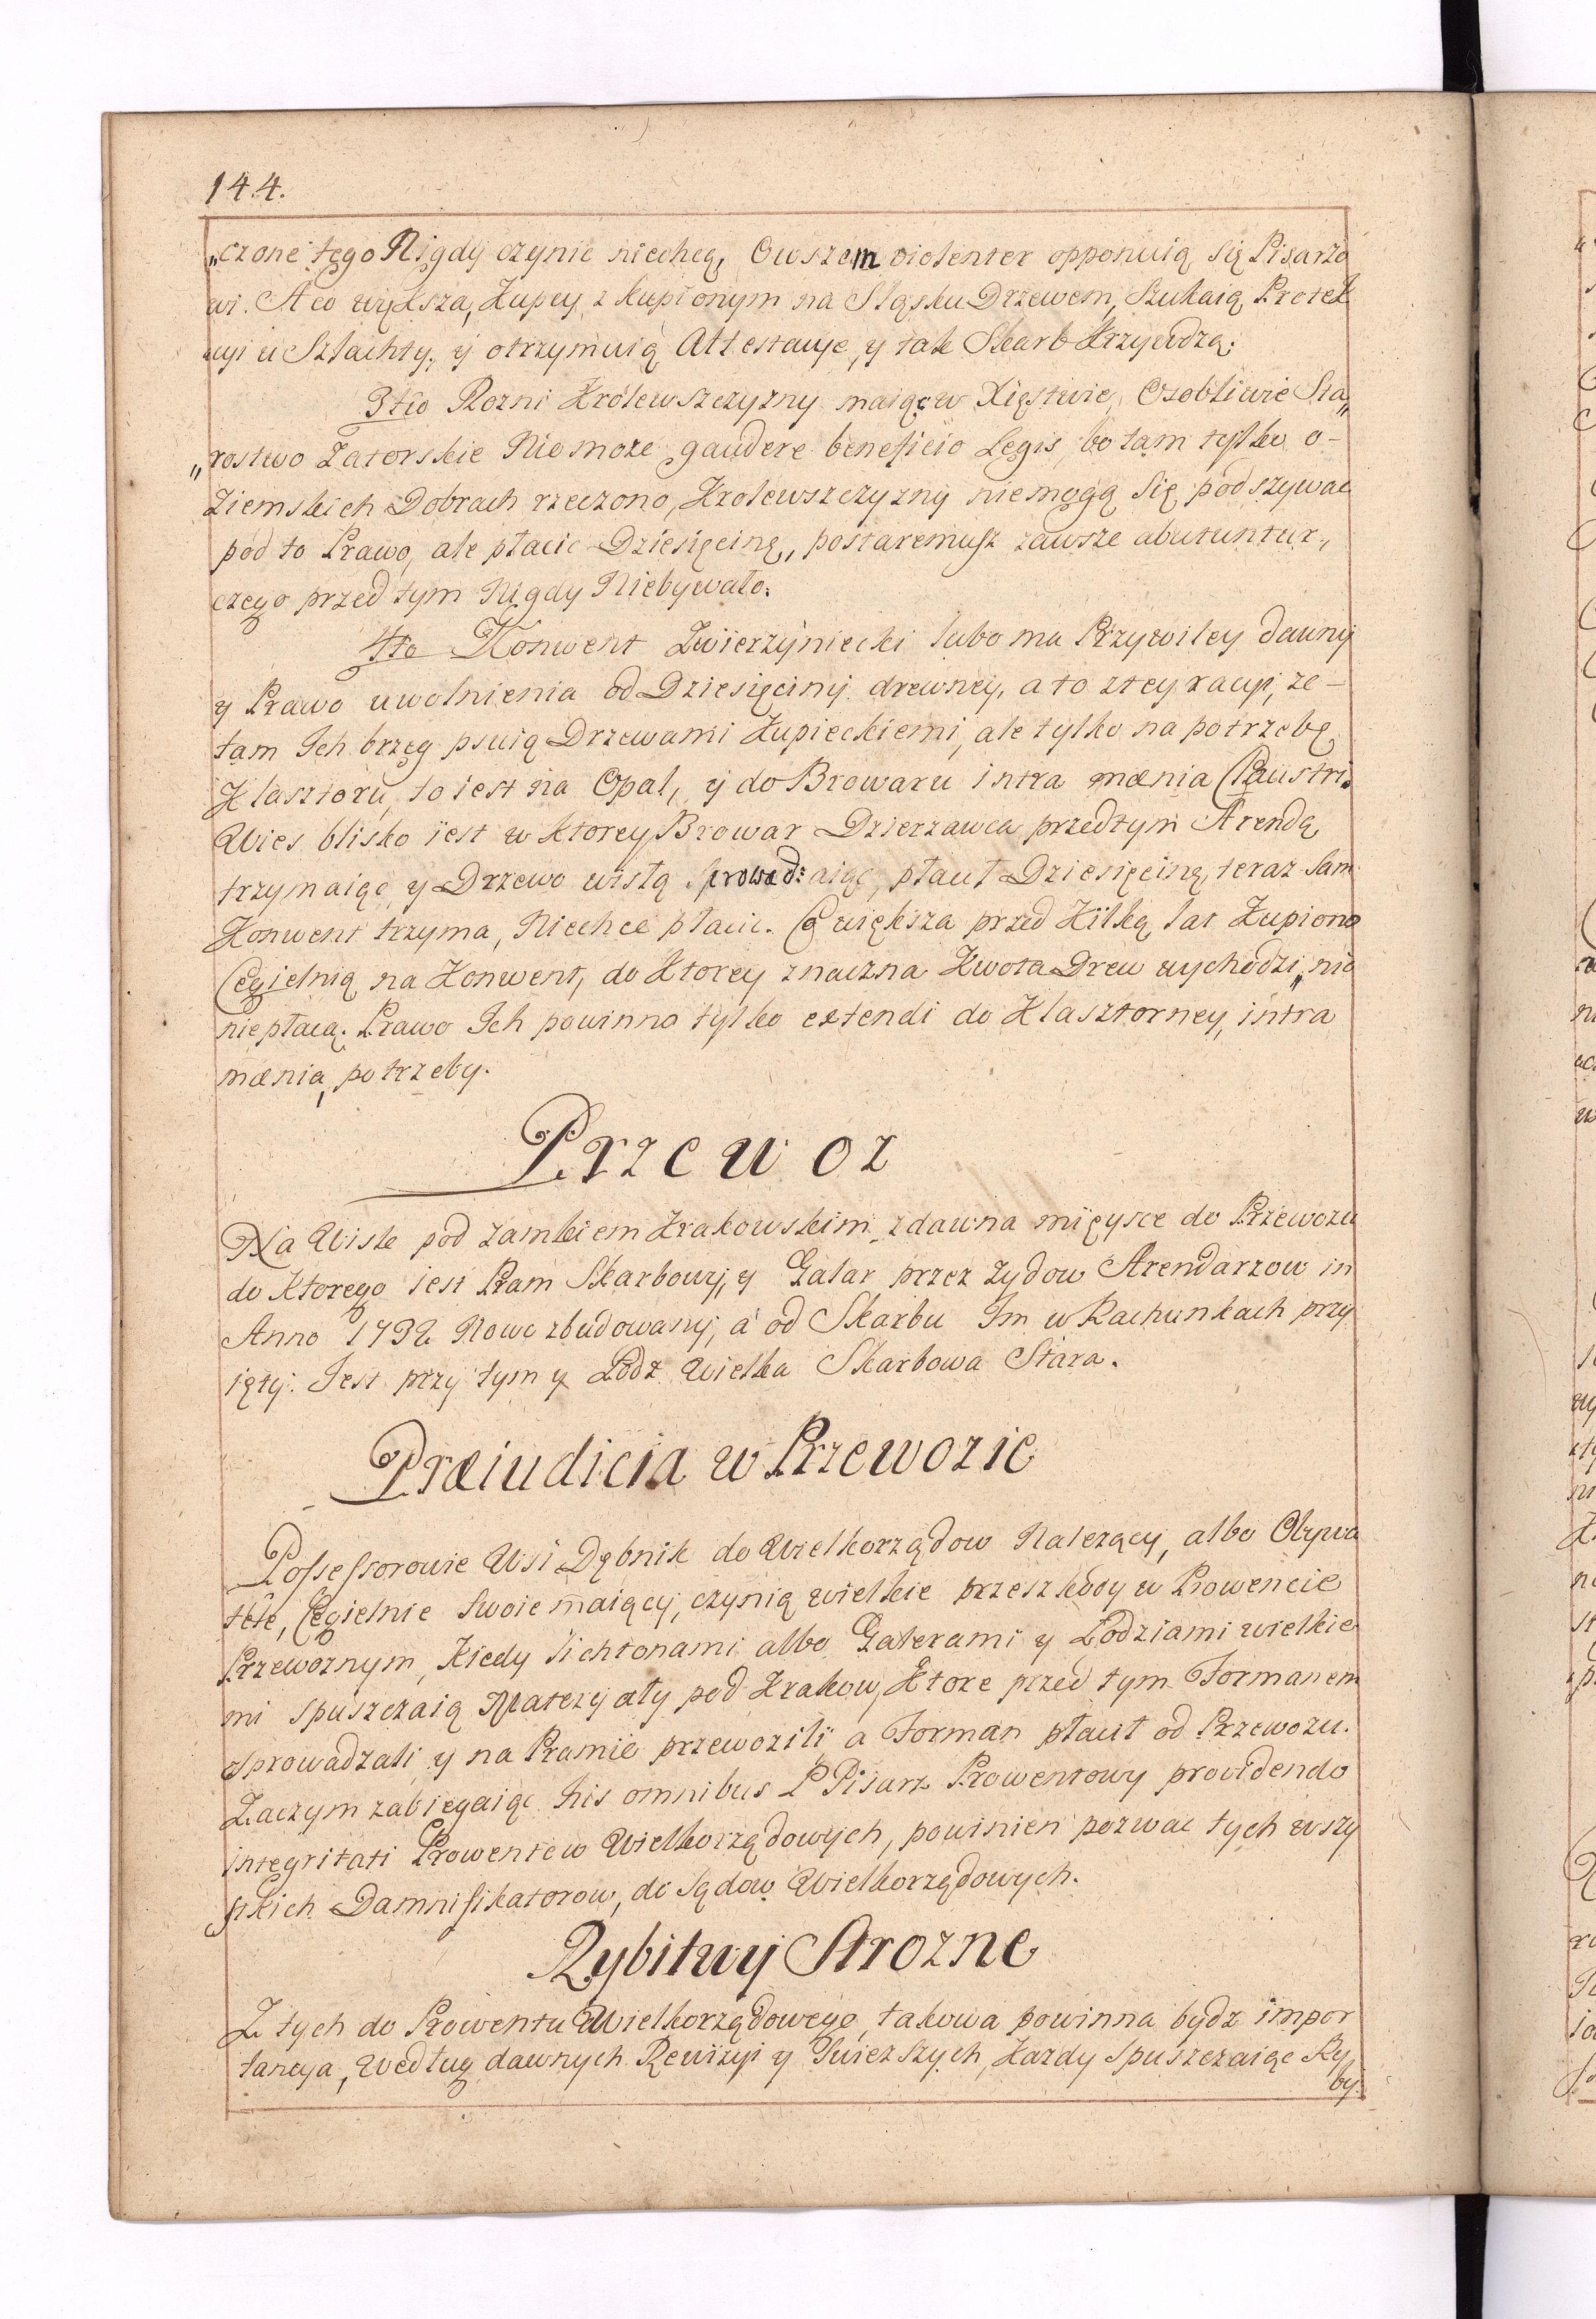 144.
„czone tego Nigdy czynic niechcą, Owszem violenter opponuią się Pisarzo
wi. A co większa, Kupcy z kupionym na Sląsku Drzewem, Szukaią Protek
cyi u Szlachty, y otrzymuią Attestacye, y tak Skarb Krzywdzą.
3tio Rozni Królewszczyzny maiąc w Xięstwie, Osobliwie Sta„
„rostwo Zatorskie Nie może gaudere beneficio Legis, bo tam tylko o-
Ziemskich Dobrach rzeczono, Krolewszczyzny niemogą się podszywac
pod to Prawo, ale płacic Dziesięcinę, postaremusz zawsze abutuntur,
czego przed tym Nigdy Niebywało.
4to Konwent Zwierzyniecki lubo ma Przywiley dawny
y Prawo uwolnienia od Dziesięciny drewney, a to z tey racyi, ze-
tam Ich brzeg psuią Drzewami Kupieckiemi, ale tylko na potrzebę
Klasztoru, to iest na Opał, y do Browaru intra mænia Claustri.
Wies blisko iest w ktorey Browar Dzierzawca przedtym Arendą
trzymaiąc, y Drzewo wisłą sprowadzaiąc, płacił Dziesięcinę, teraz sam
Konwent trzyma, Niechce płacic. Co większa przed Kilką lat Kupiono
Cegielnią na Konwent, do Ktorey znaczna Kwota Drew wychodzi, nic
niepłacą. Prawo Ich powinno tylko extendi do Klasztorney, intra
mænia, potrzeby.
Przewoz
Na Wisle pod zamkiem Krakowskim, zdawna mięysce do Przewozu
do Ktorego iest Pram Skarbowy, y Galar przez Zydow Arendarzow in
Anno 1732 Nowo zbudowany, a od Skarbu Im w Rachunkach przy
ięty. Iest przy tym y Łodz Wielka Skarbowa Stara.
Præiudicia w Przewozie
Possessorowie Wsi Dębnik do Wielkorządow Należący, albo Obywa
tele, Cegielnie swoie maiący, czynią wielkie przeszkody w Prowencie
Przewoznym, Kiedy lichtonami albo Galerami y Łodziami wielkie
mi spuszczaią Materyały pod Krakow, Ktore przed tym Formanem
sprowadzali y na Pramie przewozili a Forman płacił od Przewozu.
Zaczym zabiegaiąc his omnibus P Pisarz Prowentowy providendo
integritati Prowentow Wielkorządowych, powinien pozwac tych wszy
stkich Damnifikatorow, do Sądow Wielkorządowych.
Rybitwy Strozne
Z tych do Prowentu Wielkorządowego, takowa powinna bydz impor
tancya, według dawnych Rewizyi y Swiezszych, Kazdy spuszczaiąc Ry
by